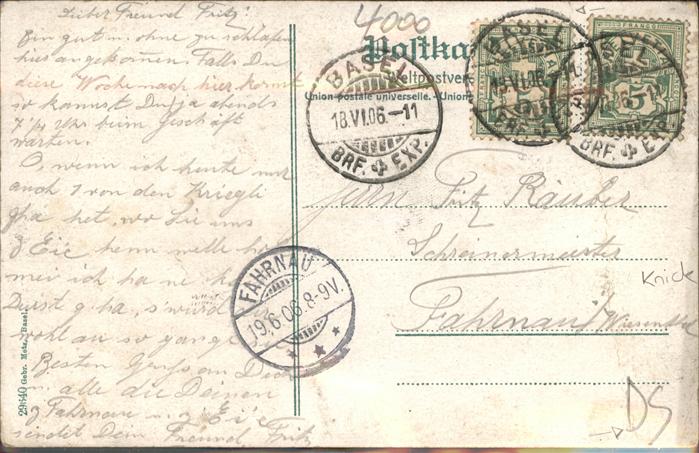 Lieber Freund Fritz!
Bin gut u. ohne zu schlafen
hier angekommen. Falls Du
diese Woche nach hier kommst
so kannst Du ja abends
7 Uhr beim Geschäft
warten.
O, wenn ich heute nur
auch 1 von den Kriegli
gha het, wo Sie uns
z'Eic henn welle
mei ich ha ne
Durst g'ha, s'wurd
wohl au so gange
Besten Gruss an Dich
u. alle die Deinen
z Fahrnau u. z Ei'c
sendet Dein Freund Fritz
29640 Gebr. Metz, Basel.
4000
Postka
Weltpostver
Union postale universelle. - Union
BASEL
18.VI.06.-11
BRF. EXP.
BASEL
18.VI.06
BRF. EXP.
BASEL
BRF. EXP.
FRANCO
5
Herrn Fritz Räuber
Schreinermeister
Fahrnau/Wiesenthal
FAHRNAU
19.6.06.8-9V.
Knick
DS